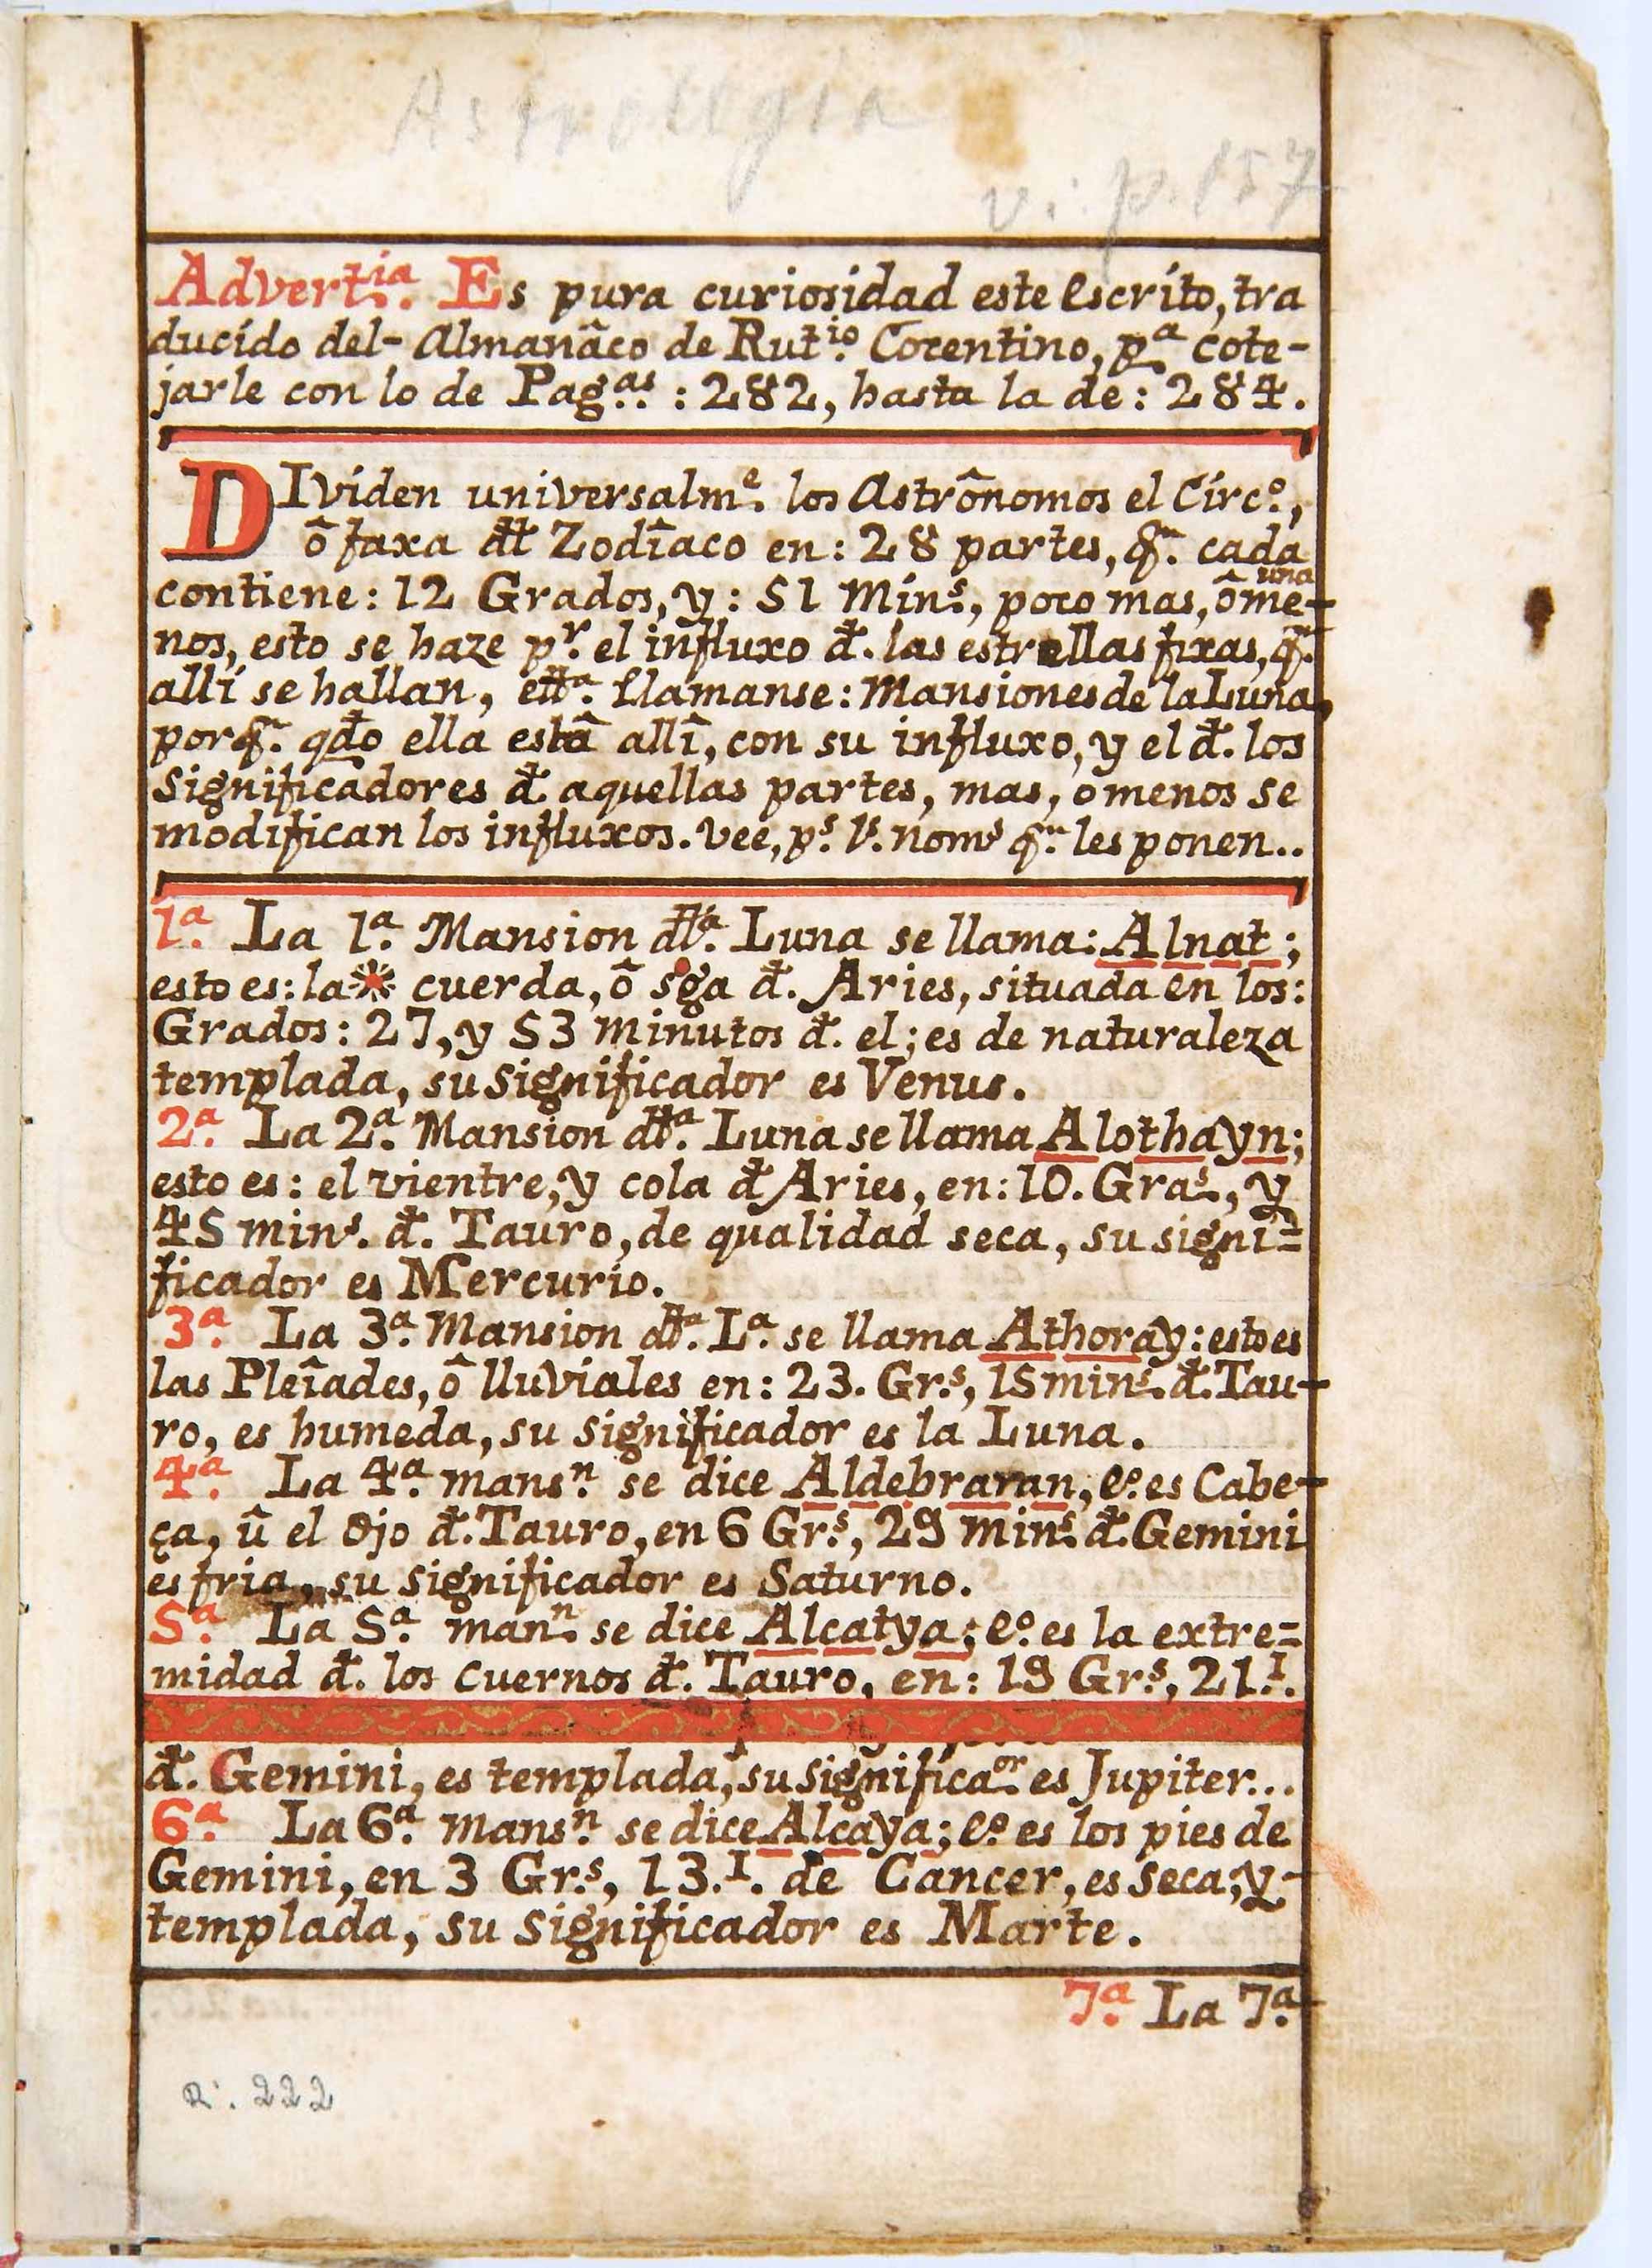 Astrologia
v. p. 157
Advert.ia Es pura curiosidad este escríto, tra
ducído del- Almanâco de Rut.io Corentino, p.a cote-
jarle con lo de Pag.as : 282, hasta la de: 284.
DIvíden universalm.e los Astrônomos el Círc.o,
ô faxa đł Zodîaco en: 28 partes, q̃. cada
una
contiene: 12 Grados, y: 51 Mín.s, poco mas, ô me-
nos, esto se haze p.r el influxo đ. las estrellas fixas, q̃.
allí se hallan, ett.a llamanse: Mansiones de la Luna,
porq̃. qđo ella estâ allî, con su influxo, y el đ. los
Significadores đ. aquellas partes, mas, o menos se
modifican los influxos. Vee, p.s l.s nom.s q̃. les ponen..
1.a La 1.a Mansion đł.a Luna se llama: Alnat;
esto es: la cuerda, ô sga đ. Aries, situada en los:
Grados: 27, y 53 minutos đ. el; es de naturaleza
templada, su significador es Venus.
2.a La 2.a Mansion đł.a Luna se llama Alothayn;
esto es: el vientre, y cola đ Aries, en: 10. Gra.s, y
45 min.s đ. Tauro, de qualidad seca, su signi=
ficador es Mercurio.
3.a La 3.a Mansion đł.a L.a se llama Athoray: esto es
las Pleîades, ô lluviales en: 23. Gr.s, 15 min.s đ. Tau-
ro, es humeda, su significador es la Luna.
4.a La 4.a mans.n se dice Aldebraran, e.o es Cabe-
ça, û el Ojo đ. Tauro, en 6 Gr.s, 29 min.s đ. Gemini
es fria, su significador es Saturno.
5.a La 5.a man.n se dice Alcatya; e.o es la extre=
midad đ. los cuernos đ. Tauro, en: 19 Gr.s, 21.I.
đ. Gemini, es templada, su significa.or es Jupiter...
6.a La 6.a mans.n se dice Alcaya; e.o es los pies de
Gemini, en 3 Gr.s, 13.I. de Cancer, es seca, y-
templada, su significador es Marte.
7.a La 7.a
R. 222